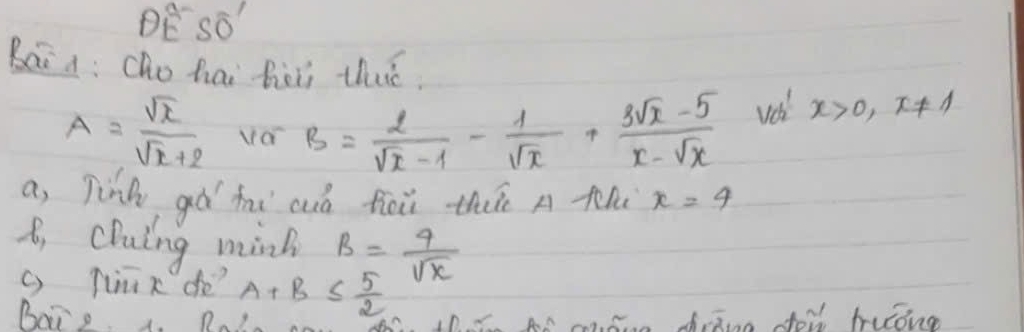 ĐỀ SỐ
Bài 1: Cho hai biểu thức.
A = \frac{\sqrt{x}}{\sqrt{x}+2} và B = \frac{2}{\sqrt{x}-1} - \frac{1}{\sqrt{x}} + \frac{3\sqrt{x}-5}{x-\sqrt{x}} với x>0, x≠1
a, Tính giá trị của biểu thức A khi x = 4
b, Chứng minh B = \frac{4}{\sqrt{x}}
c, Tìm x để A+B ≤ \frac{5}{2}
Bài 2. 1.